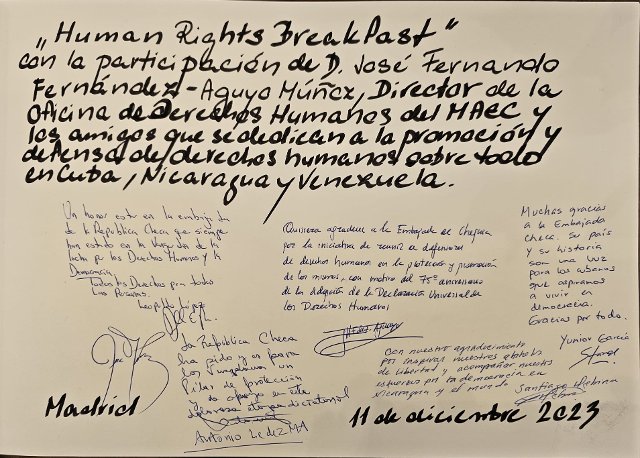 „Human Rights BreakFast"
con la participación de D. José Fernando
Fernández-Aguyo Múñoz, Director de la
Oficina de Derechos Humanos del MAEC y
los amigos que se dedican a la promoción y
defensa de derechos humanos sobre todo
en Cuba, Nicaragua y Venezuela.
Un honor estar en la embajada
de la República Checa que siempre
han estado en la vanguardia de la
lucha por los Derechos Humanos y la
Democracia.
Todos los Derechos para todas
las Personas.
Quisiera agradecer a la Embajada de Chequia
por la iniciativa de reunir a defensores
de derechos humanos en la protección y promoción
de los mismos, con motivo del 75º aniversario
de la adopción de la Declaración Universal de
los Derechos Humanos
Muchas gracias
a la Embajada
Checa. Su país
y su historia
son una luz
para los cubanos
que aspiramos
a vivir en
democracia.
Gracias por todo.
Yunior García
La República Checa
ha sido y es para
los
Pilar de protección
y apoyo en esta
dictatorial
Antonio LedEZMA
Con nuestro agradecimiento
por inspirar nuestros
de libertad y acompañar nuestros
esfuerzos por la democracia en
Nicaragua y el mundo
Santiago Urbina
Madrid
11 de diciembre 2023